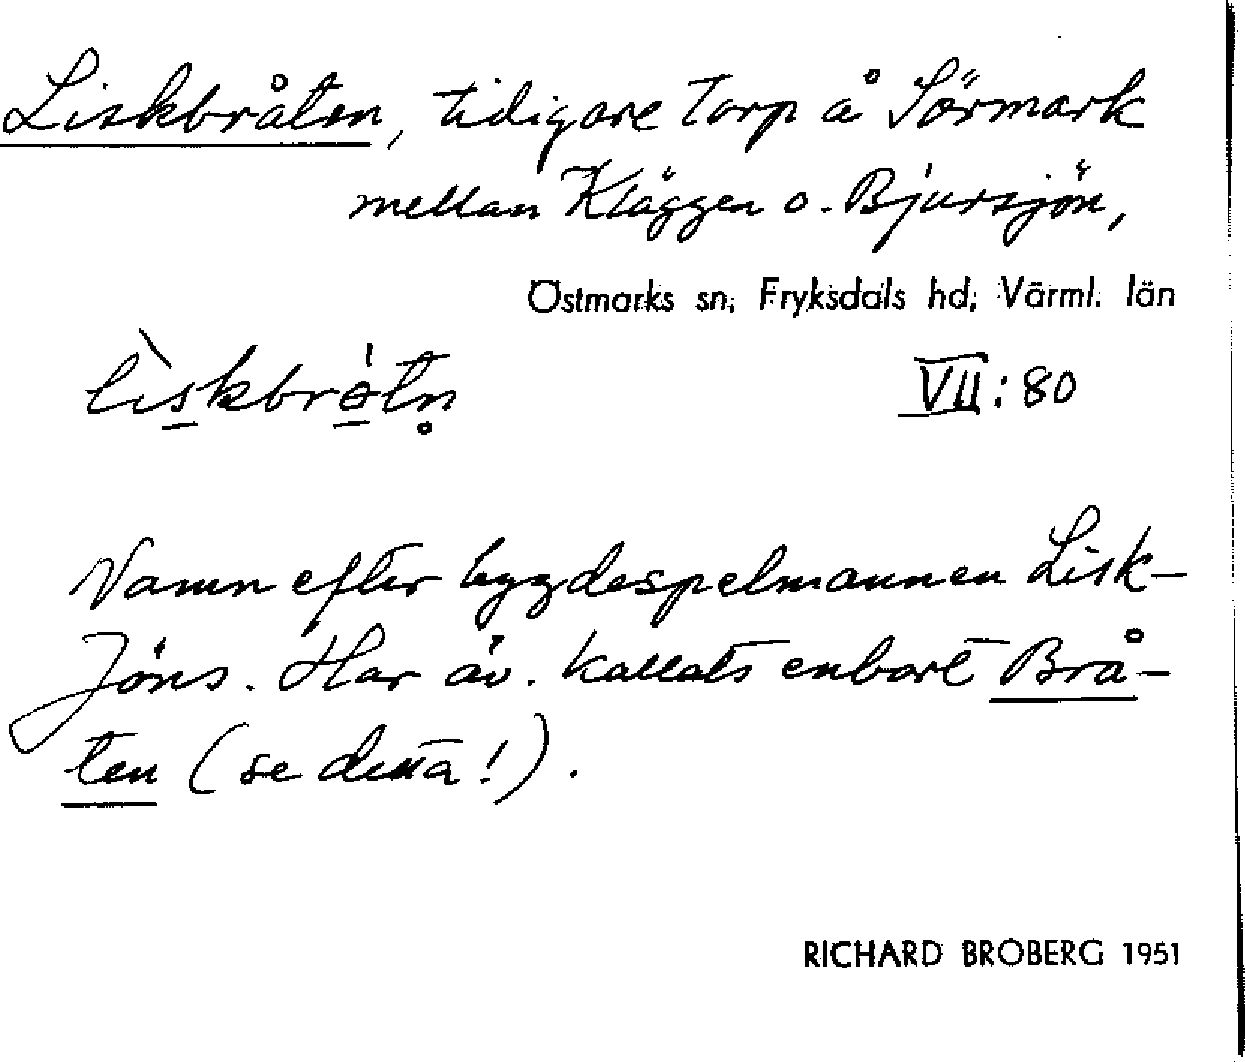 Liskbråten, tidigare torp å Sörmark
mellan Kläggen o. Bjursjön,
Östmarks sn, Fryksdals hd, Värml. län
lìskbrótn̥
VII:80
Namn efter bygdespelmannen Lisk-
Jöns. Har äv. kallats enbart Brå-
ten (se detta!).
RICHARD BROBERG 1951